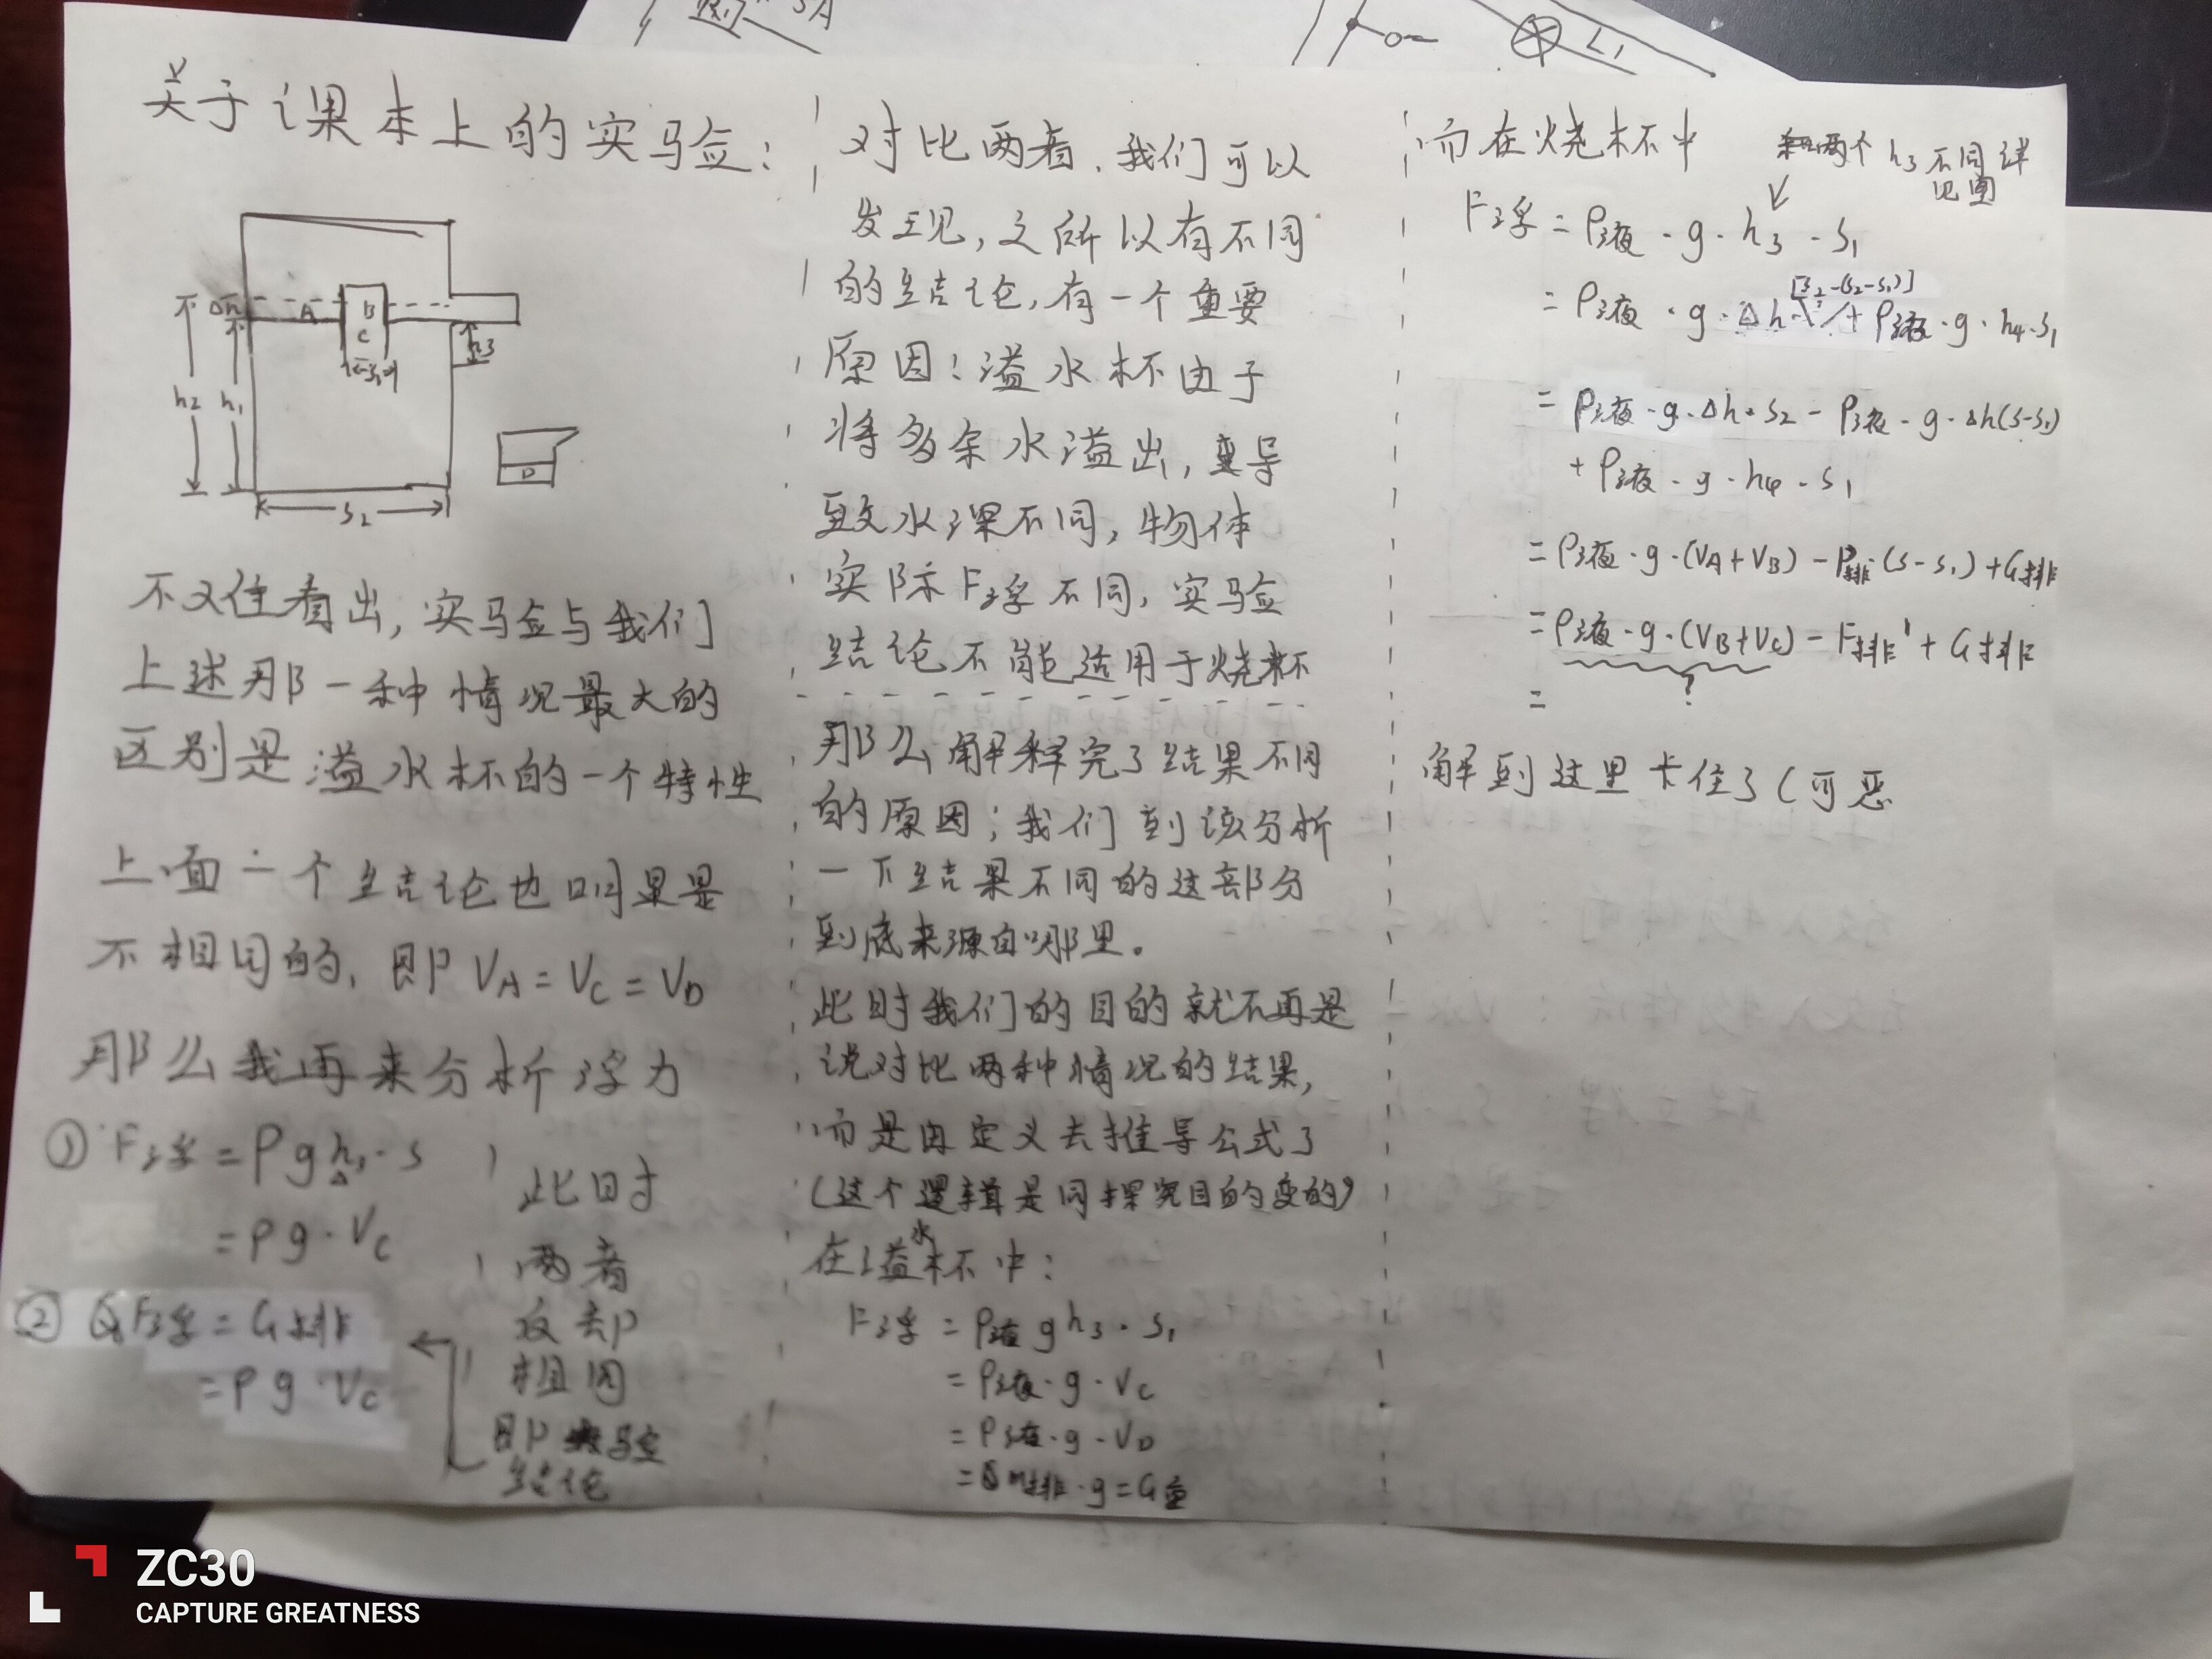 关于课本上的实验:
Δh
A
B
C
h3
h2
h1
S1
S2
D
不难看出,实验与我们
上述那一种情况最大的
区别是溢水杯的一个特性
上面一个结论也
不相同的,即 VA=VC=VD
那么我再来分析浮力
① F浮=ρgh3·S
=ρg·VC
② F浮=G排
=ρg·VC
此时
两者
却
相同
即实验
结论
对比两者,我们可以
发现,之所以有不同
的结论,有一个重要
原因:溢水杯由于
将多余水溢出,导
致水深不同,物体
实际F浮不同,实验
结论不能适用于烧杯
那么解释完了结果不同
的原因;我们到该分析
一下结果不同的这部分
到底来源自哪里。
此时我们的目的就不再是
说对比两种情况的结果,
而是由定义去推导公式了
(这个逻辑是同探究目的变的)
在溢水杯中:
F浮=ρ液gh3·S1
=ρ液·g·VC
=ρ液·g·VD
=m排·g=G重
而在烧杯中
两个h3不同详
见图
F浮=ρ液·g·h3·S1
[S2-(S2-S1)]
=ρ液·g·Δh+ρ液·g·h4·S1
=ρ液·g·Δh·S2-ρ液·g·Δh(S-S1)
+ρ液·g·h4·S1
=ρ液·g·(VA+VB)-P排·(S-S1)+G排
=ρ液·g·(VB+VC)-F排'+G排
?
=
解到这里卡住了(可恶
L1
ZC30
CAPTURE GREATNESS